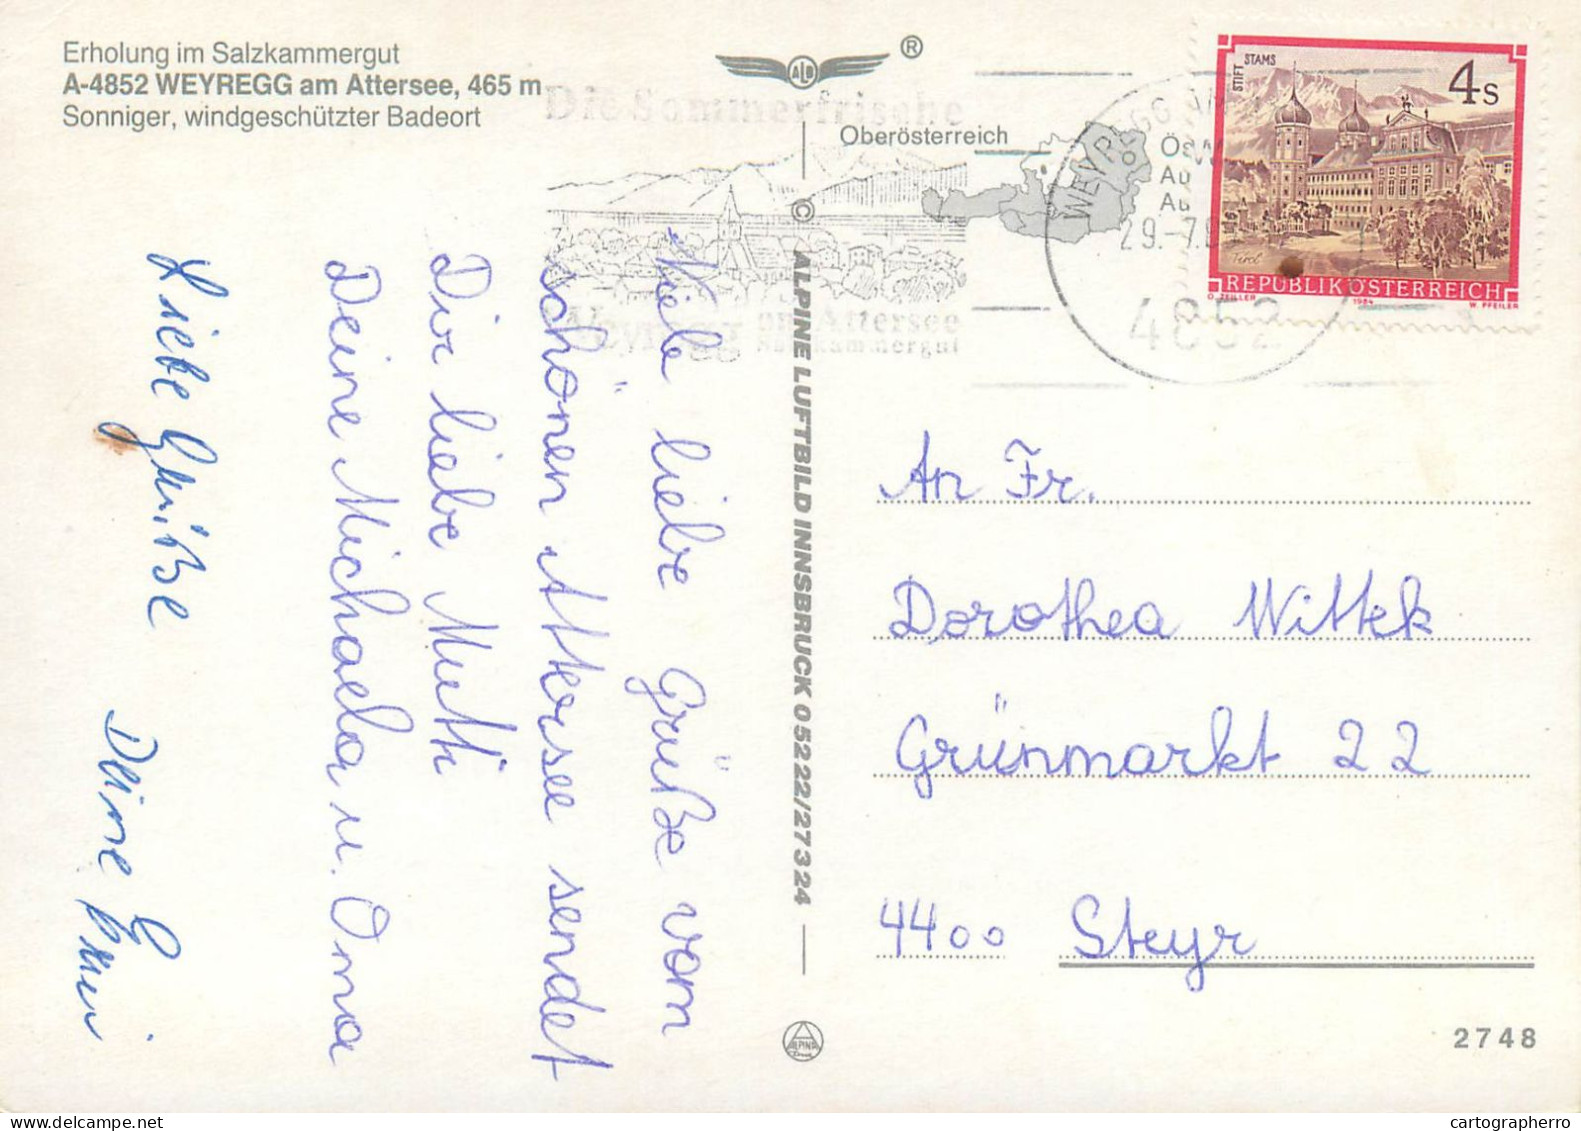 Erholung im Salzkammergut
A-4852 WEYREGG am Attersee, 465 m
Sonniger, windgeschützter Badeort
ALB
®
Die Sommerfrische
Weyregg am Attersee
Salzkammergut
Oberösterreich
WEYREGG AM
29.-7.
4852
STIFT STAMS
4S
Tirol
REPUBLIK ÖSTERREICH
O. ZEILLER 1984 W. PFEILER
© ALPINE LUFTBILD INNSBRUCK 05222/27324
ALPINA
Viele liebe Grüße vom
schönen Attersee sendet
Dir liebe Mutti
Deine Michaela u. Oma
Liebe Grüße Deine
An Fr.
Dorothea Wittek
Grünmarkt 22
4400 Steyr
2748
cartographerro